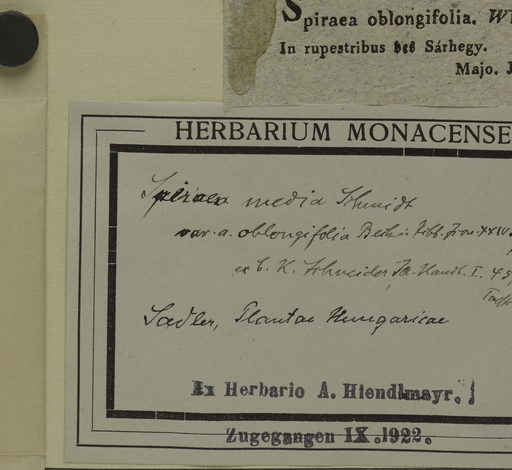 Spiraea oblongifolia. W
In rupestribus Sárhegy.
Majo. J
HERBARIUM MONACENSE
Spiraea media Schmidt
var. a. oblongifolia Beck in
ex C. K. Schneider, Ill. Handb. I. 4
Sadler, Plantae Hungaricae
Ex Herbario A. Hiendlmayr.
Zugegangen IX.1922.